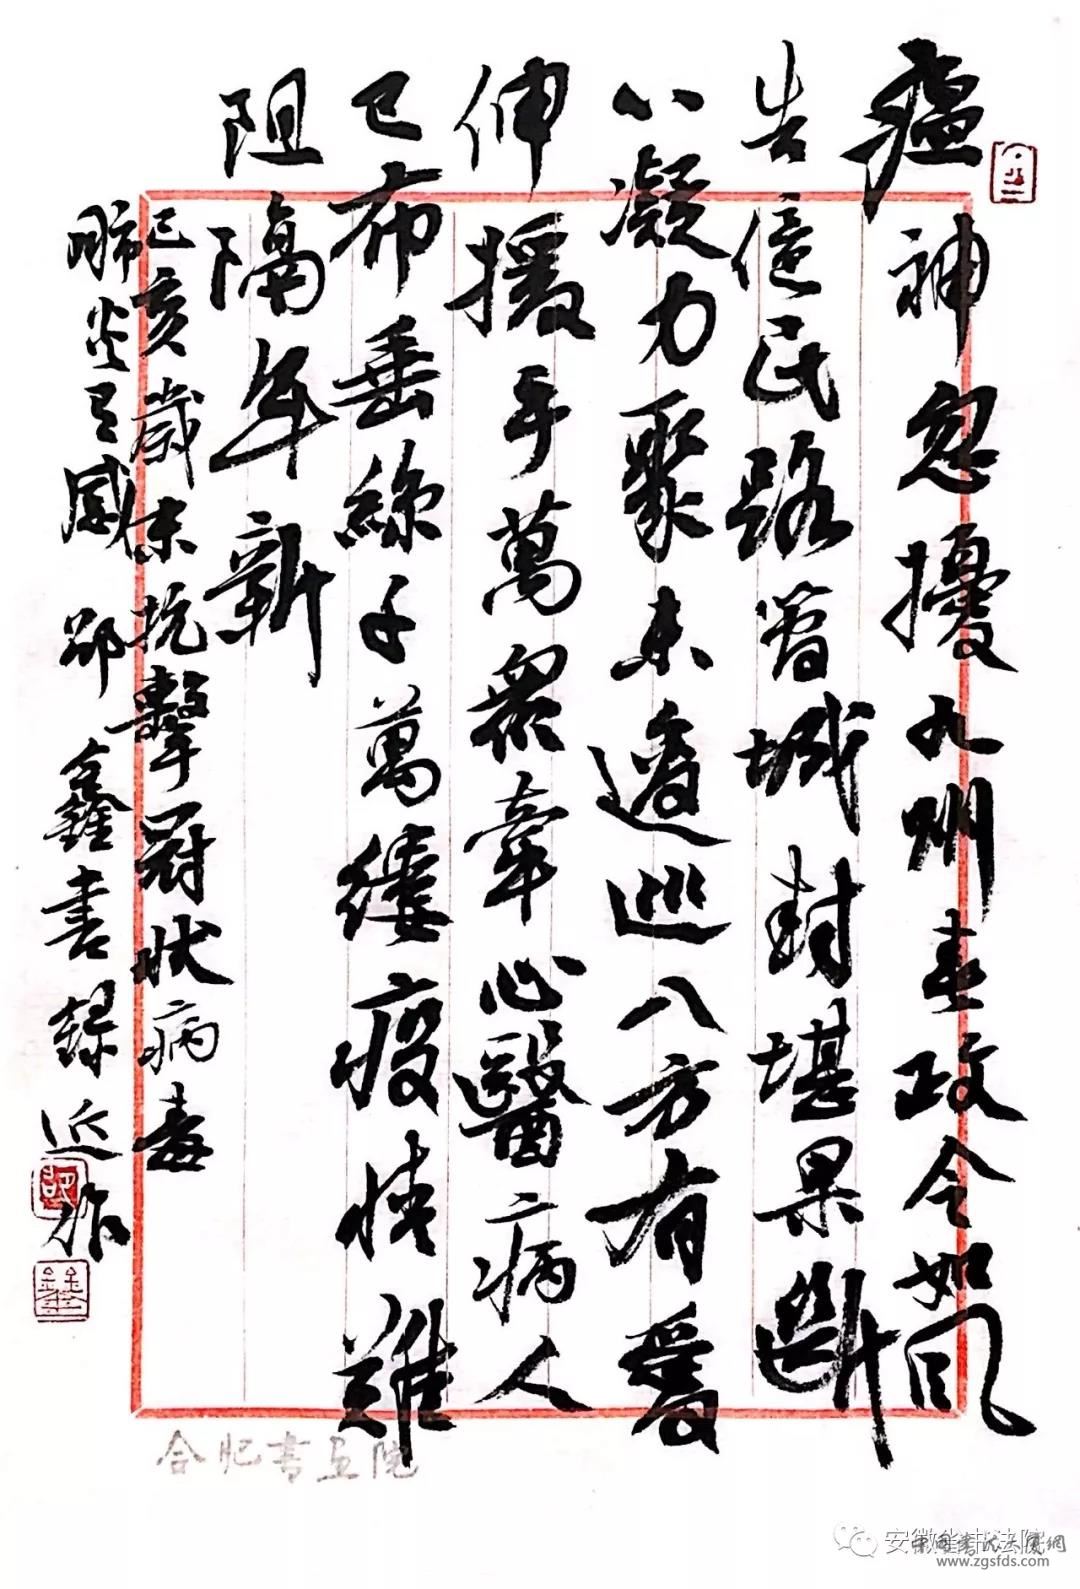 瘟神忽擾九州春政令如風
告億民路管城封堪果斷
心凝力聚未逡巡八方有愛
伸援手萬眾牽心醫病人
已布垂絲千萬縷疫情難
阻隔年新
己亥歲末抗擊冠狀病毒
肺炎有感 邵鑫書錄近作
邵
鑫
合肥書画院
安徽省书法院
www.zgsfds.com